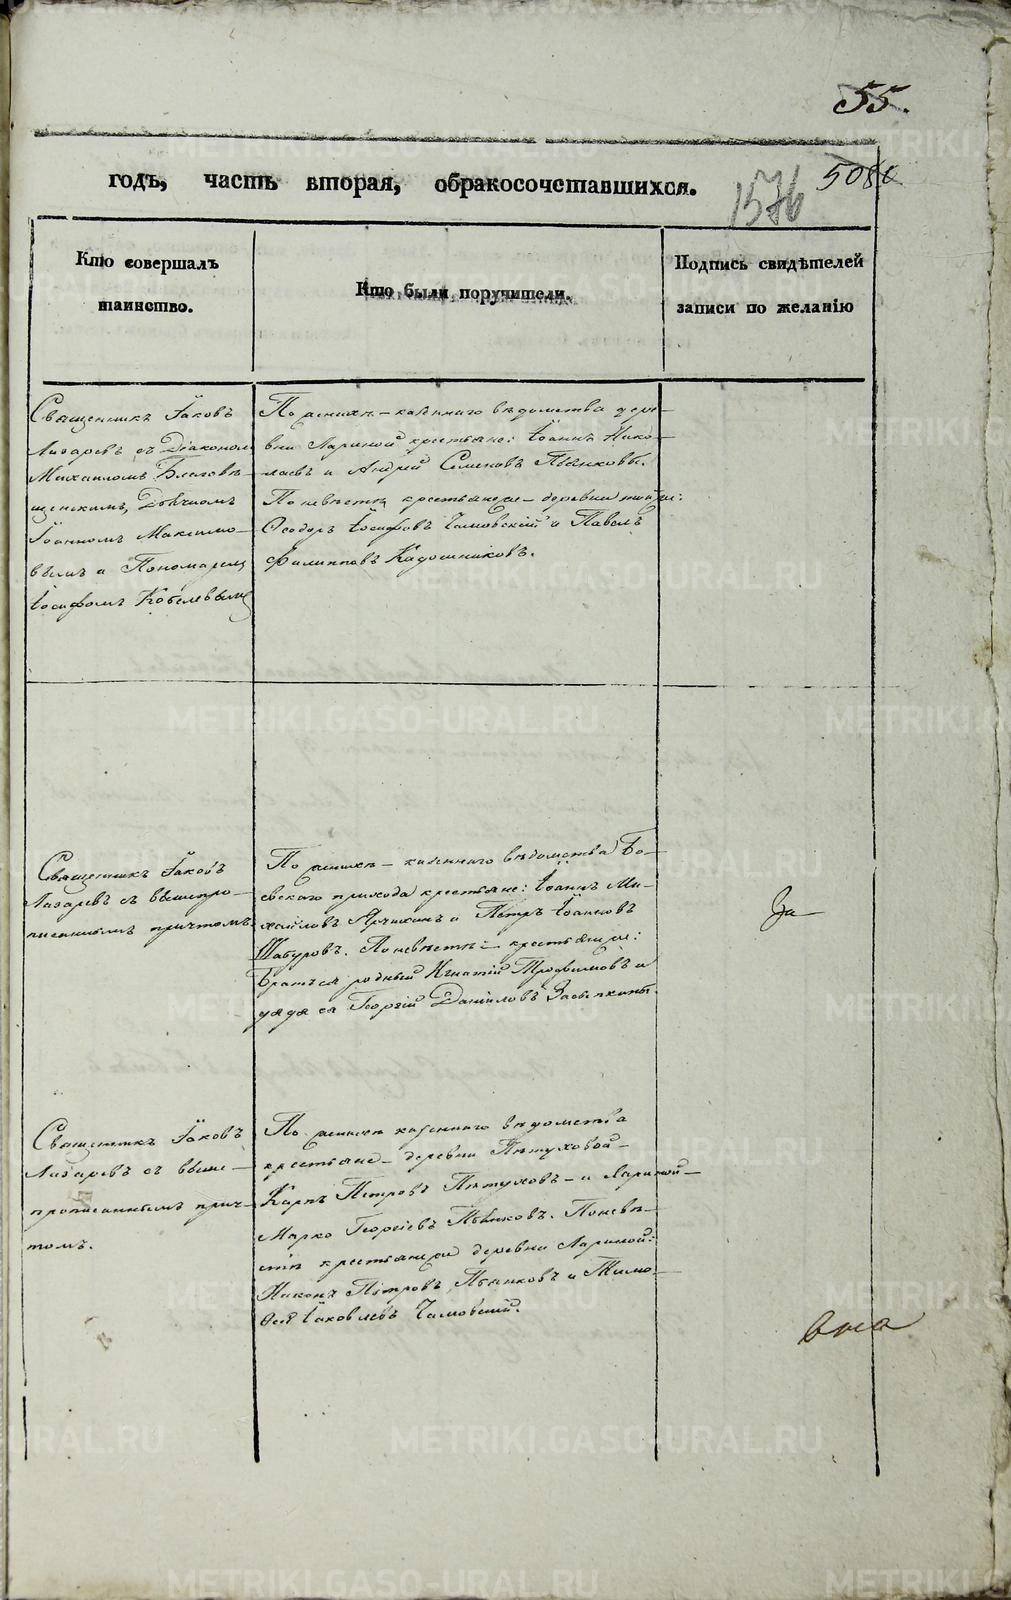 55.
годъ, часть вторая, обракосочетавшихся.
1576
508
Кто совершалъ
таинство.
Кто были поручители.
Подпись свидѣтелей
записи по желанію
Священникъ Іаковъ
Лазаревъ съ Діакономъ
Михаиломъ Благовѣ-
щенскимъ, Дьячкомъ
Іоанномъ Максимо-
вымъ и Пономаремъ
Іосифомъ Кобелевымъ
По женихѣ – казеннаго вѣдомства дере-
вни Лариной крестьяне: Іоаннъ Нико-
лаевъ и Андрей Семеновъ Пьянковы.
По невѣстѣ крестьяне – деревни той же:
Ѳеодоръ Іосифовъ Чамовскій и Павелъ
Филипповъ Кадошниковъ.
Священникъ Іаковъ
Лазаревъ съ вышепро-
писаннымъ причтомъ.
По женихѣ – казеннаго вѣдомства Бо-
евскаго прихода крестьяне: Іоаннъ Ми-
хаиловъ и Петръ Іоанновъ
Шабуровъ. По невѣстѣ – крестьяне:
Братъ ея родный Игнатій Трофимовъ и
дядя ея Георгій Даніиловъ Засыпкины.
За
Священникъ Іаковъ
Лазаревъ съ выше-
прописаннымъ прич-
томъ.
По женихѣ казеннаго вѣдомства
крестьяне – деревни Пѣтуховой –
Карпъ Петровъ Пѣтуховъ – и Лариной –
Марко Георгіевъ Пьянковъ. По невѣ-
стѣ крестьяне деревни Лариной:
Никонъ Петровъ Пьянковъ и Тимо-
ѳей Іаковлевъ Чамовскій.
METRIKI.GASO-URAL.RU